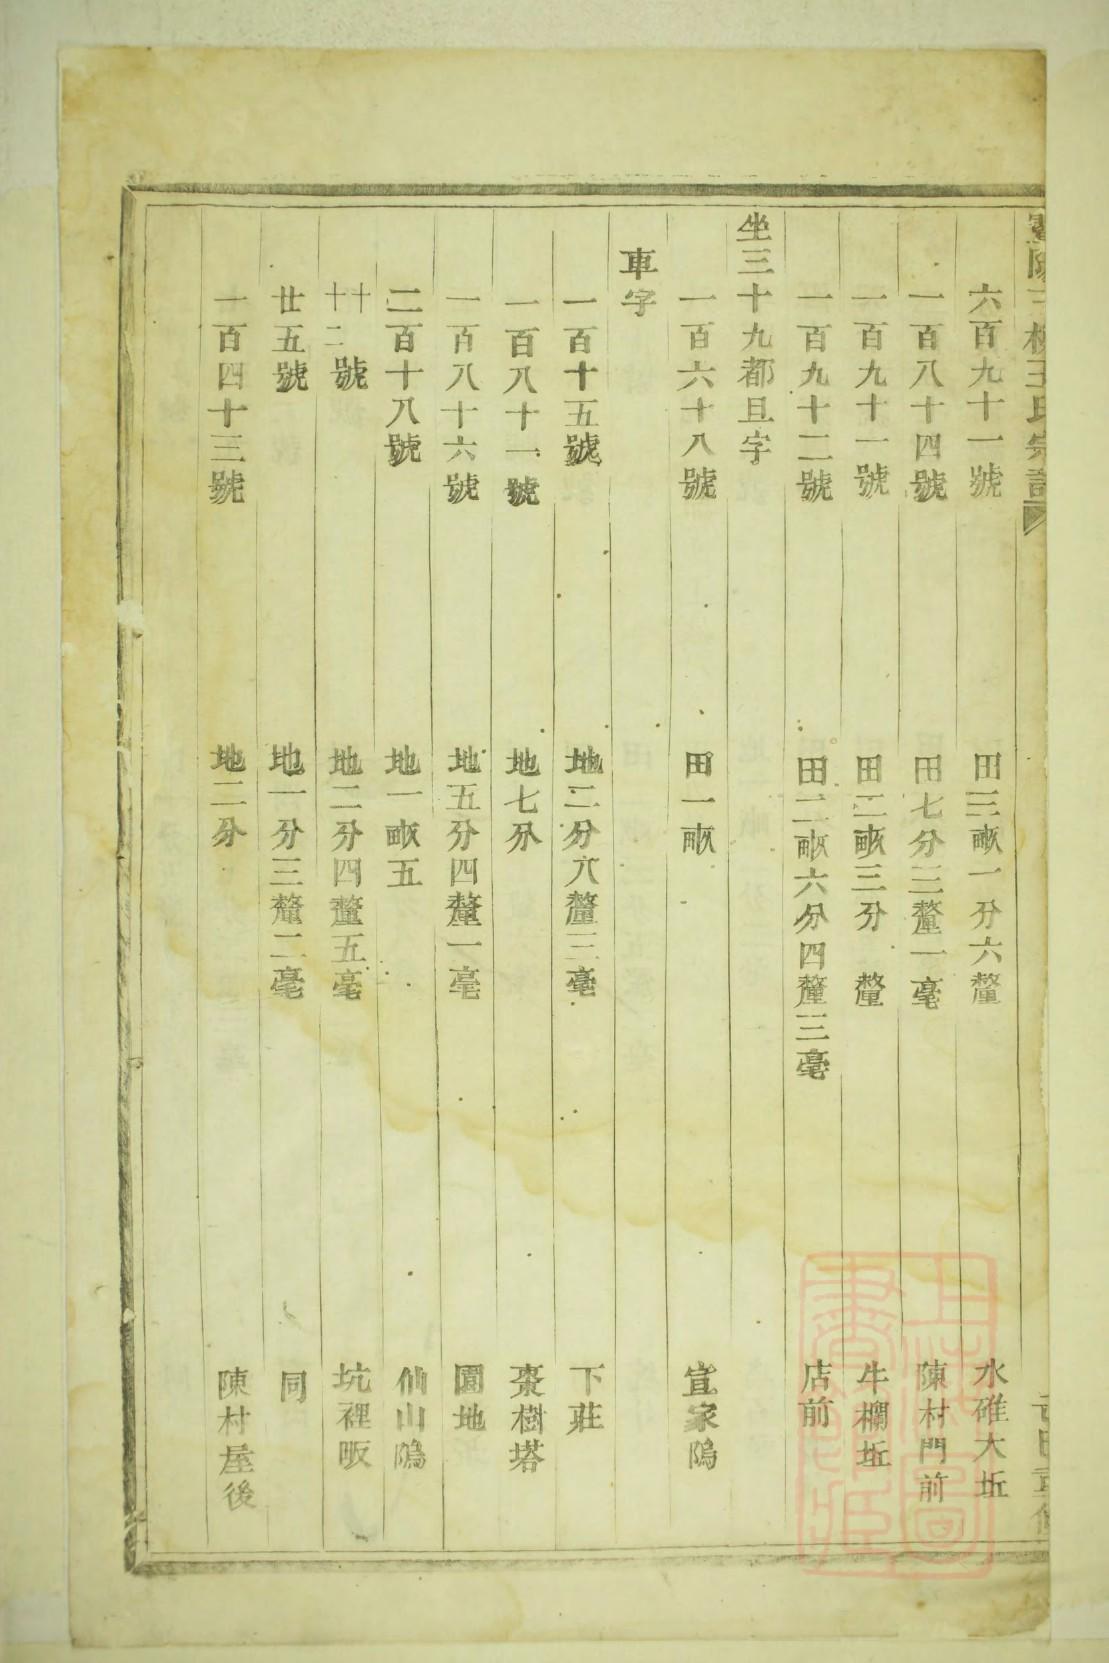 六百九十一號 田三畝一分六釐 水碓大坵
一百八十四號 田七分二釐一毫 陳村門前
一百九十一號 田二畝三分 釐 牛欄坵
一百九十二號 田二畝六分四釐三毫 店前
坐三十九都旦字
一百六十八號 田一畝 宣家隖
車字
一百十五號 地二分六釐三毫 下莊
一百八十一號 地七分 棗樹塔
一百八十六號 地五分四釐一毫 園地
二百十八號 地一畝五 仙山隖
十十二號 地二分四釐五毫 坑裡畈
廿五號 地一分三釐二毫 同
一百四十三號 地二分 陳村屋後